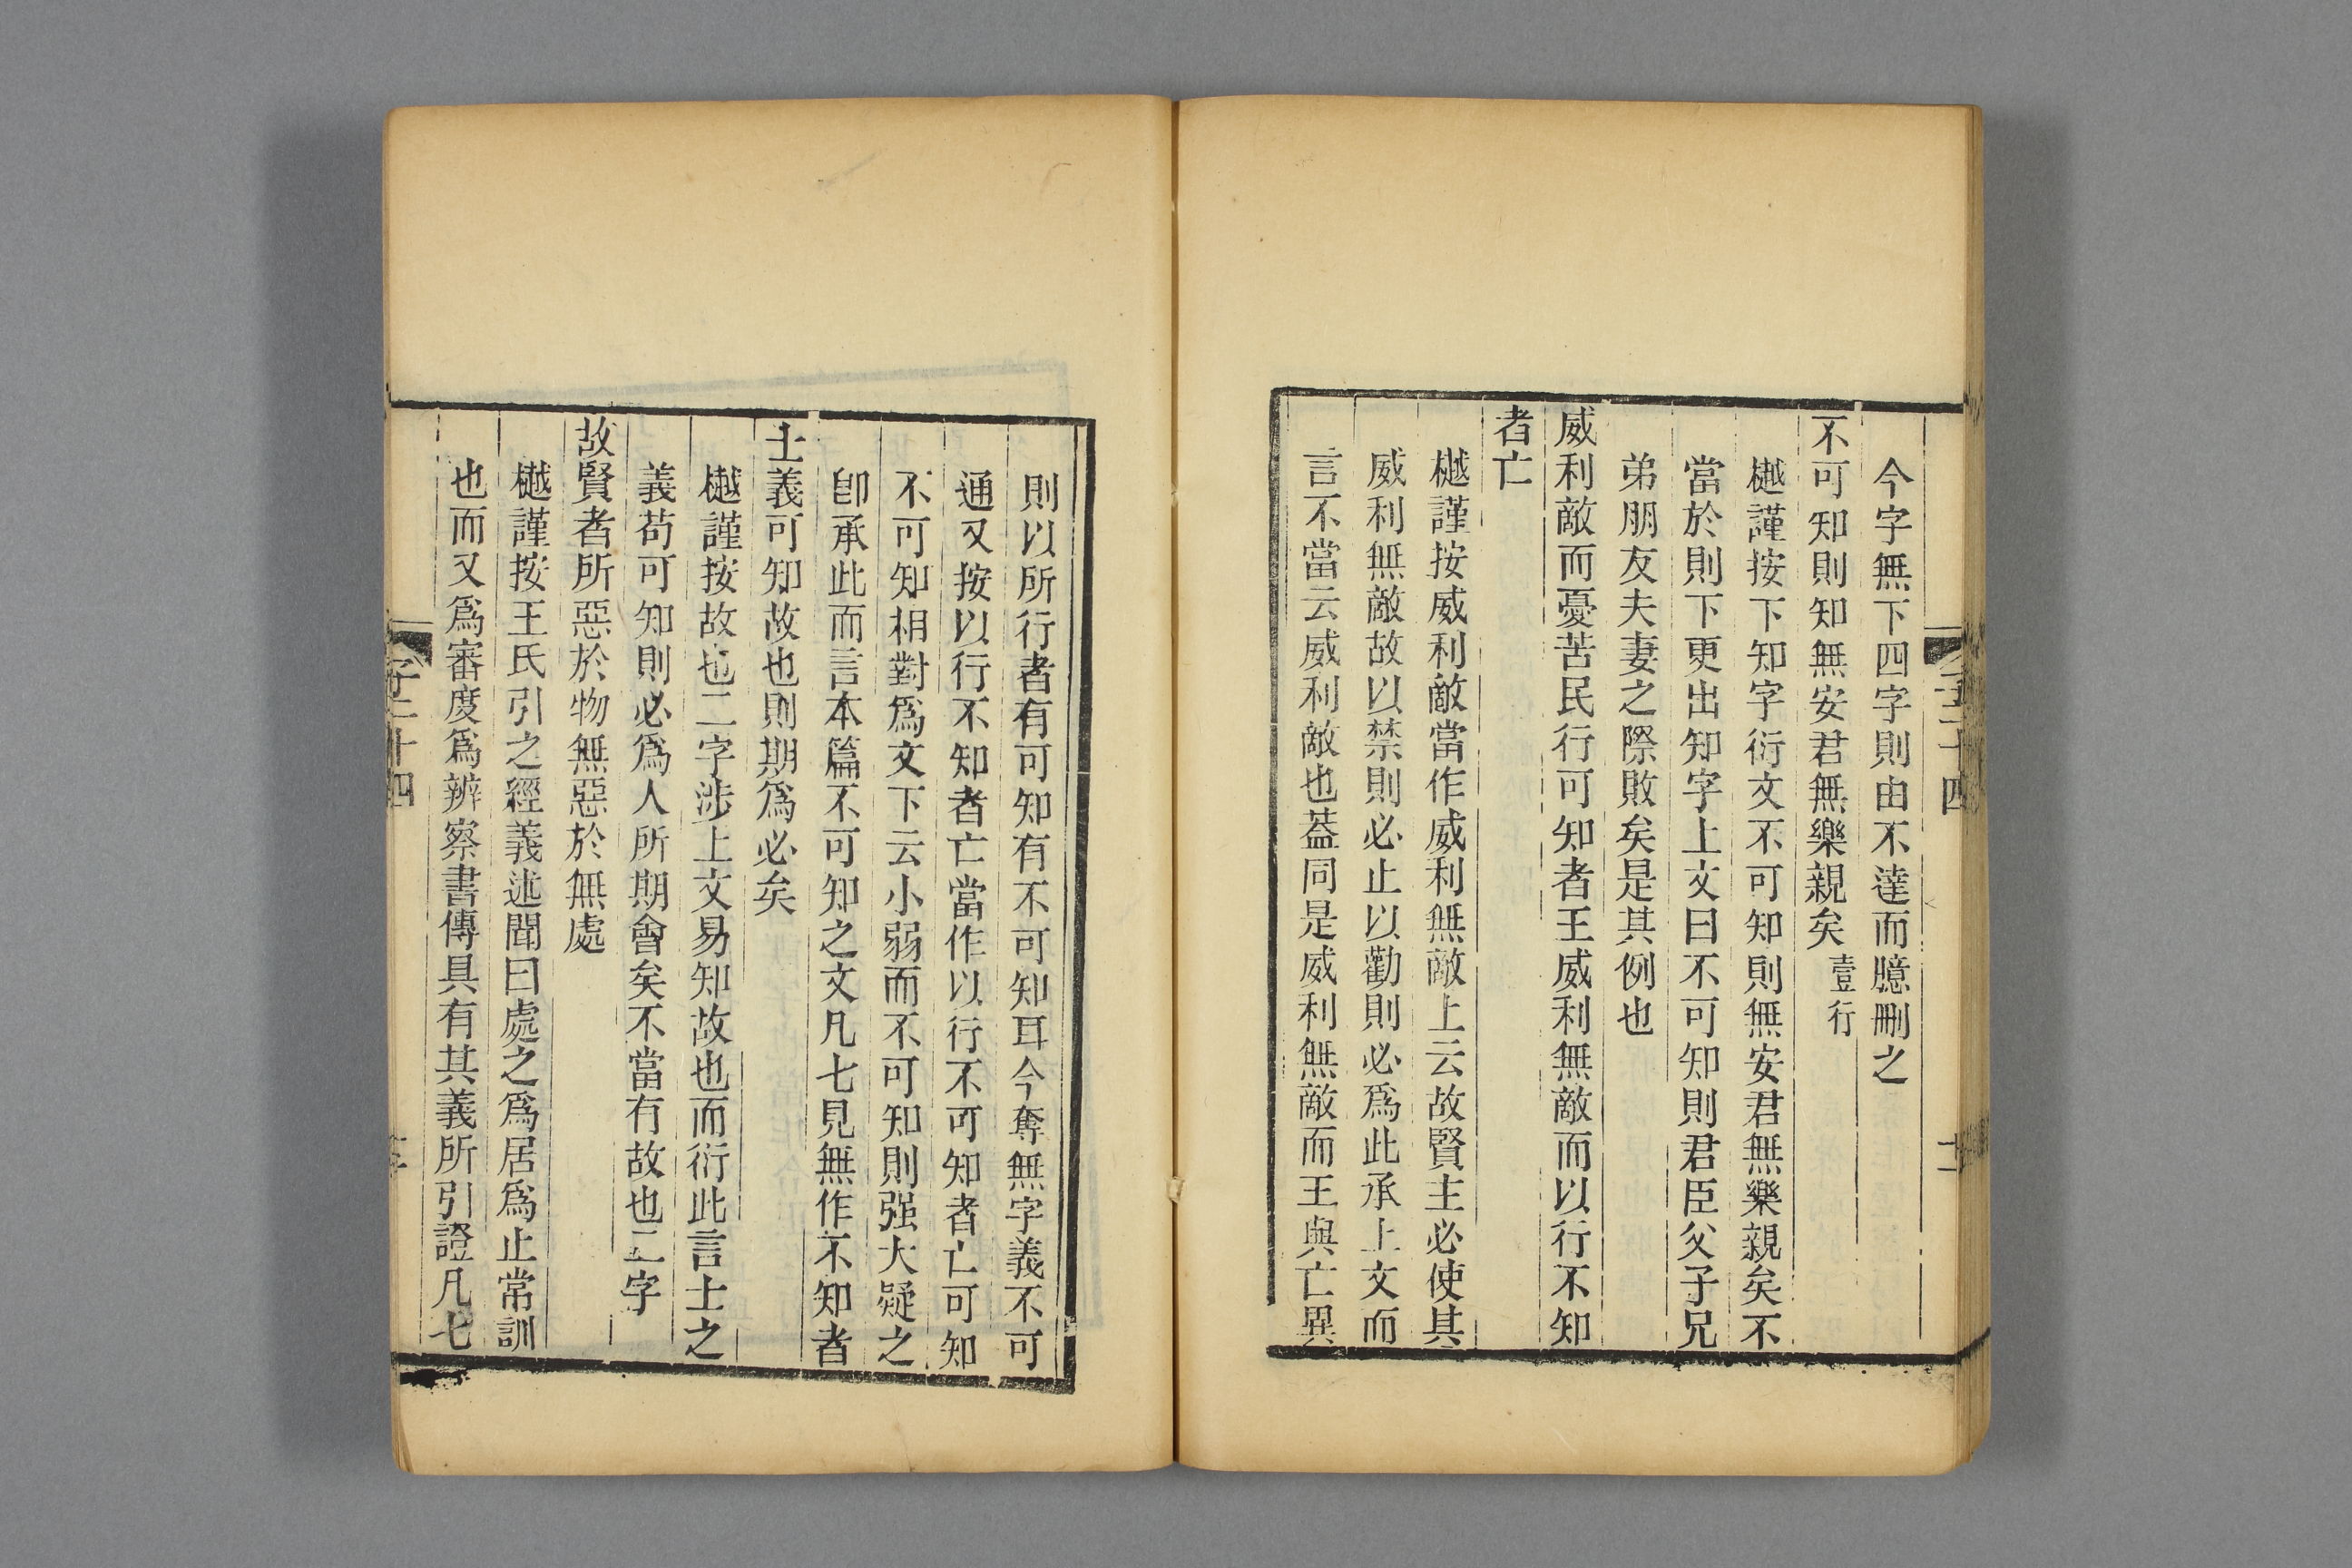 今字無下四字則由不達而臆刪之
不可知則知無安君無樂親矣壹行
樾謹按下知字衍文不可知則無安君無樂親矣不
當於則下更出知字上文曰不可知則君臣父子兄
弟朋友夫妻之際敗矣是其例也
威利敵而憂苦民行可知者王威利無敵而以行不知
者亡
樾謹按威利敵當作威利無敵上云故賢主必使其
威利無敵故以禁則必止以勸則必爲此承上文而
言不當云威利敵也葢同是威利無敵而王與亡異
則以所行者有可知有不可知耳今奪無字義不可
通又按以行不知者亡當作以行不可知者亡可知
不可知相對爲文下云小弱而不可知則强大疑之
卽承此而言本篇不可知之文凡七見無作不知者
士義可知故也則期爲必矣
樾謹按故也二字涉上文易知故也而衍此言士之
義苟可知則必爲人所期會矣不當有故也二字
故賢者所惡於物無惡於無處
樾謹按王氏引之經義述聞曰處之爲居爲止常訓
也而又爲審度爲辨察書傳具有其義所引證凡七